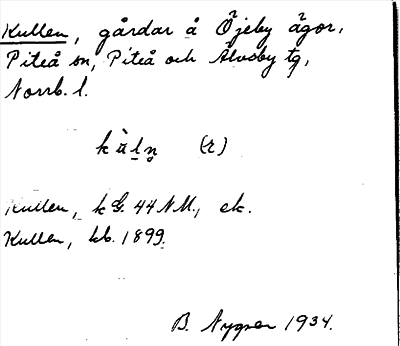 Kullen, gårdar å Öjeby ägor,
Piteå sn, Piteå och Älvsby tg,
Norrb. l.
kùln̥ (r)
Kullen, k G. 44 NM., ek.
Kullen, kb. 1899.
B. Nygren 1934.